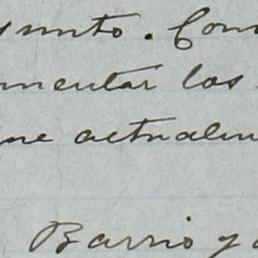 asunto. Con
mentar los
que actualm
Barrio y a